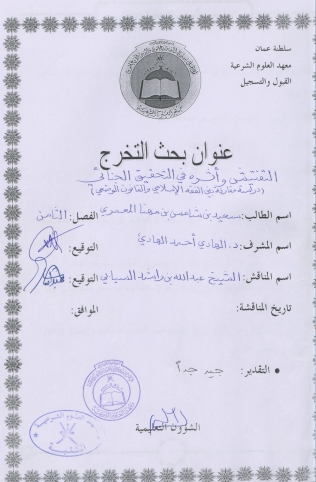 سلطنة عمان
معهد العلوم الشرعية
القبول والتسجيل
عنوان بحث التخرج
التفتيش وأثره في التحقيق الجنائي
(دراسة مقارنة بين الفقه الإسلامي والقانون الوضعي)
اسم الطالب: سعيد بن شامس بن مهنا المعمري الفصل: الثامن
اسم المشرف: د. الهادي أحمد الهادي التوقيع:
اسم المناقش: الشيخ عبدالله بن راشد السيابي التوقيع:
تاريخ المناقشة: الموافق:
• التقدير: جيد جداً
الشؤون التعليمية